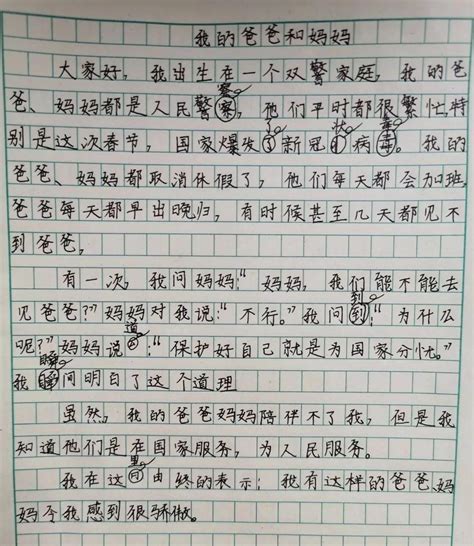 我的爸爸和妈妈
大家好，我出生在一个双警家庭，我的爸
爸、妈妈都是人民警察，他们平时都很繁忙，特
别是这次春节，国家爆发了新冠状病毒。我的
爸爸、妈妈都取消休假了，他们每天都会加班，
爸爸每天都早出晚归，有时候甚至几天都见不
到爸爸，
有一次，我问妈妈：“妈妈，我们能不能去
见爸爸？”妈妈对我说：“不行。”我问到：“为什么
呢？”妈妈说道：“保护好自己就是为国家分忧。”
我瞬间明白了这个道理
虽然，我的爸爸妈妈陪伴不了我，但是我
知道他们是在国家服务，为人民服务。
我在这里由终的表示：我有这样的爸爸、妈
妈令我感到很骄傲。